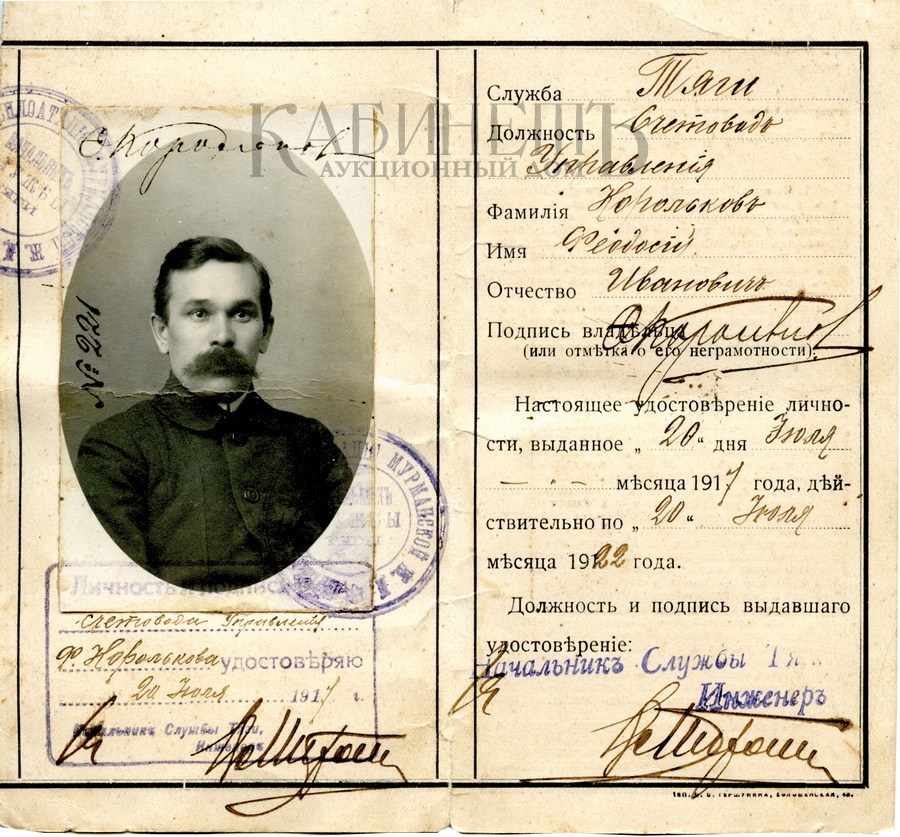 Ѳ Корольков
№ 221
МУРМАНСКОЙ Ж. Д.
Личность и подпись
счетовода Управленія
Ф. Королькова удостовѣряю
20 Іюля 1917 г.
Начальникъ Службы Тяги,
Инженеръ
КАБИНЕТЪ
АУКЦИОННЫЙ ДОМ
Служба Тяги
Должность Счетоводъ
Управленія
Фамилія Корольковъ
Имя Феодосій
Отчество Ивановичъ
Подпись владѣльца
(или отмѣтка о его неграмотности).
Настоящее удостовѣреніе лично-
сти, выданное „ 20 “ дня Іюля
— " — мѣсяца 1917 года, дѣй-
ствительно по „ 20 “ Іюля
мѣсяца 1922 года.
Должность и подпись выдавшаго
удостовѣреніе:
Начальникъ Службы Тяги
Инженеръ